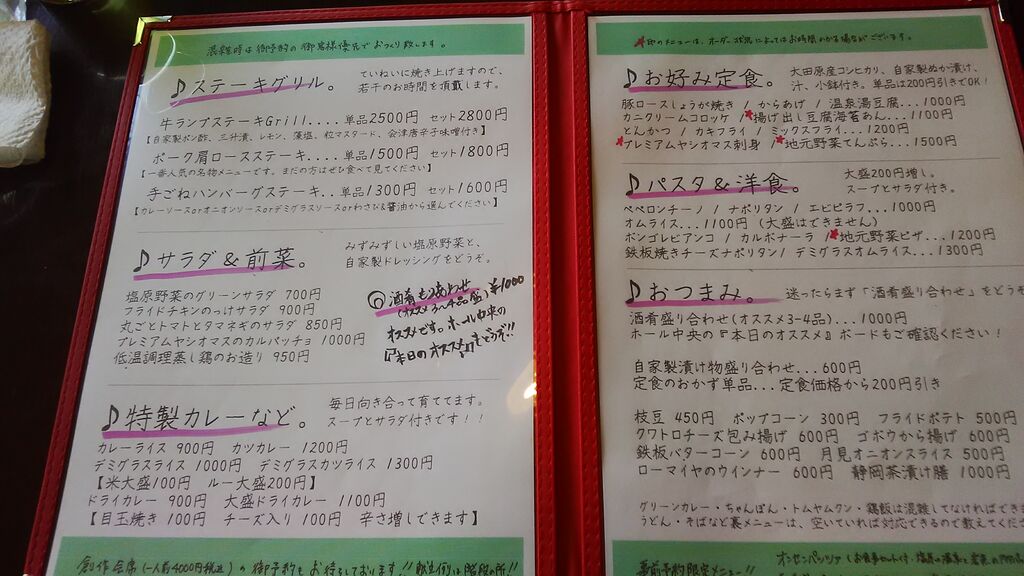 混雑時は御予約の御客様優先でおつくり致します。
♪ステーキグリル。
ていねいに焼き上げますので、
若干のお時間を頂戴します。
牛ランプステーキGrill....単品2500円 セット2800円
【自家製ポン酢、三升漬、レモン、藻塩、粒マスタード、会津唐辛子味噌付き】
ポーク肩ロースステーキ....単品1500円 セット1800円
【一番人気の名物メニューです。まだの方はぜひ食べて見てください】
手ごねハンバーグステーキ..単品1300円 セット1600円
【カレーソースorオニオンソースorデミグラスソースorわさび&醤油から選んでください】
♪サラダ&前菜。
みずみずしい塩原野菜と、
自家製ドレッシングをどうぞ。
塩原野菜のグリーンサラダ 700円
フライドチキンのっけサラダ 900円
丸ごとトマトとタマネギのサラダ 850円
プレミアムヤシオマスのカルパッチョ 1000円
低温調理蒸し鶏のお造り 950円
◎酒肴もりあわせ
(オススメ3~4品盛)¥1000
オススメです。ホール中央の
『本日のオススメ』もどうぞ!!
♪特製カレーなど。
毎日向き合って育ててます。
スープとサラダ付きです!!
カレーライス 900円 カツカレー 1200円
デミグラスライス 1000円 デミグラスカツライス 1300円
【米大盛100円 ルー大盛200円】
ドライカレー 900円 大盛ドライカレー 1100円
【目玉焼き 100円 チーズ入り 100円 辛さ増しできます】
創作会席(一人前4000円税込)の御予約もお待ちしております!!
★印のメニューは、オーダー状況によってはお時間かかる場合がございます。
♪お好み定食。
大田原産コシヒカリ、自家製ぬか漬け、
汁、小鉢付き。単品は200円引きでOK!
豚ロースしょうが焼き / からあげ / 温泉湯豆腐...1000円
カニクリームコロッケ /★揚げ出し豆腐海苔あん...1100円
とんかつ / カキフライ / ミックスフライ...1200円
★プレミアムヤシオマス刺身 /★地元野菜てんぷら...1500円
♪パスタ&洋食。
大盛200円増し。
スープとサラダ付き。
ペペロンチーノ / ナポリタン / エビピラフ...1000円
オムライス...1100円 (大盛はできません)
ボンゴレビアンコ / カルボナーラ /★地元野菜ピザ...1200円
鉄板焼きチーズナポリタン/ デミグラスオムライス...1300円
♪おつまみ。
迷ったらまず「酒肴盛り合わせ」をどうぞ
酒肴盛り合わせ(オススメ3-4品)...1000円
ホール中央の『本日のオススメ』ボードもご確認ください!
自家製漬け物盛り合わせ...600円
定食のおかず単品...定食価格から200円引き
枝豆 450円 ポップコーン 300円 フライドポテト 500円
クワトロチーズ包み揚げ 600円 ゴボウから揚げ 600円
鉄板バターコーン 600円 月見オニオンスライス 500円
ローマイヤのウインナー 600円 静岡茶漬け膳 1000円
グリーンカレー・ちゃんぽん・トムヤムクン・鶏飯は混雑してなければできま
うどん・そばなど裏メニューは、空いていれば対応できるので教えてくださ
事前予約限定メニュー!!